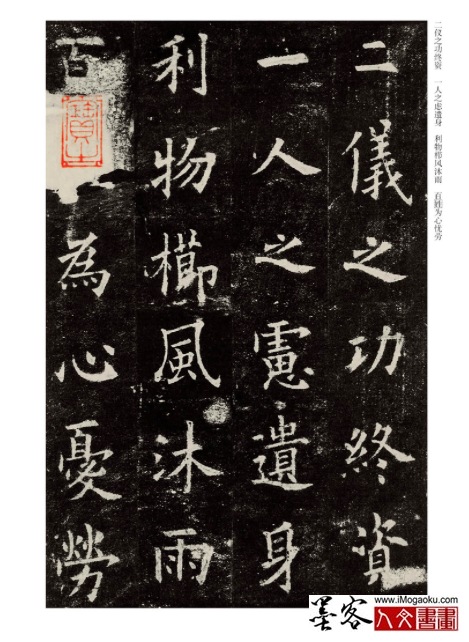 二仪之功终资 一人之虑遗身 利物栉风沐雨 百姓为心忧劳
二儀之功終資
一人之慮遺身
利物櫛風沐雨
百為心憂勞
墨客
www.iMogaoku.com
人文書畫